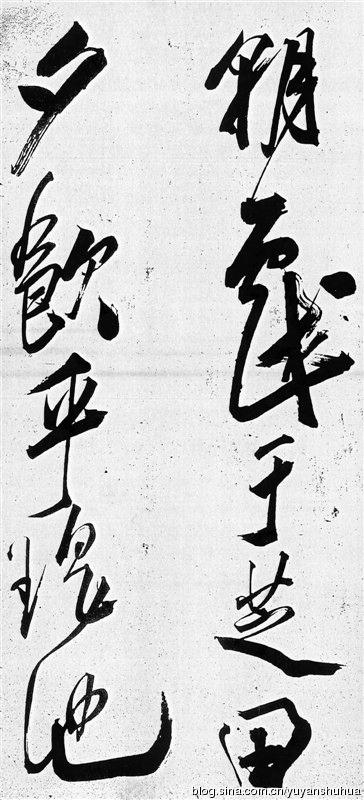 朝戲于芝田
夕飲乎瑤池
blog.sina.com.cn/yuyanshuhua